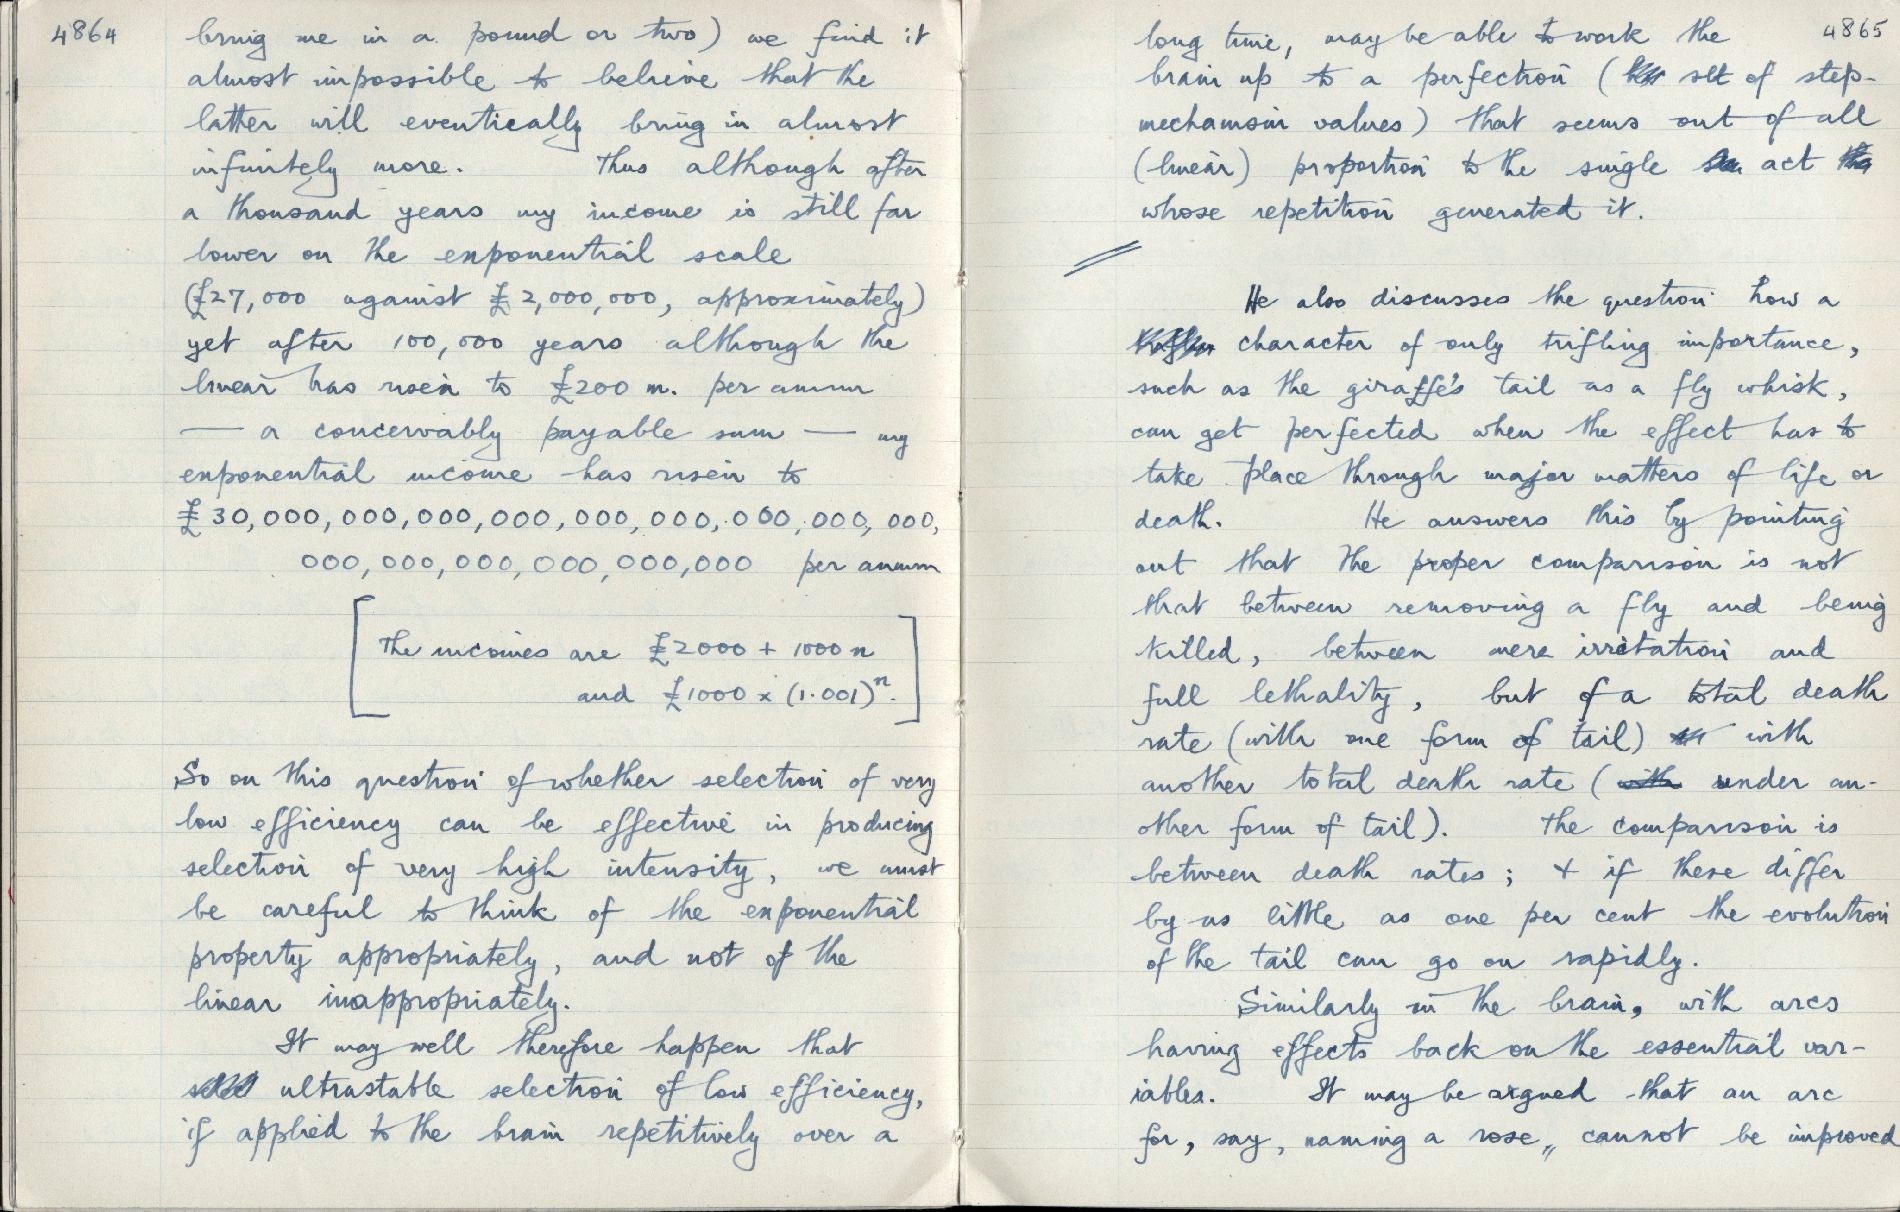 4864
bring me in a pound or two) we find it
almost impossible to believe that the
latter will eventically bring in almost
infinitely more. Thus although after
a thousand years my income is still far
lower on the exponential scale
(£27,000 against £2,000,000, approximately)
yet after 100,000 years although the
linear has risen to £200 m. per annum
— a conceivably payable sum — my
exponential income has risen to
£30,000,000,000,000,000,000,000,000,000,
000,000,000,000,000,000 per annum
[The incomes are £2000 + 1000 n
and £1000 × (1.001)ⁿ.]
So on this question of whether selection of very
low efficiency can be effective in producing
selection of very high intensity, we must
be careful to think of the exponential
property appropriately, and not of the
linear inappropriately.
It may well therefore happen that
ultrastable selection of low efficiency,
if applied to the brain repetitively over a
4865
long time, may be able to work the
brain up to a perfection ( set of step-
mechanism values) that seems out of all
(linear) proportion to the single act
whose repetition generated it.
He also discusses the question how a
character of only trifling importance,
such as the giraffe's tail as a fly whisk,
can get perfected when the effect has to
take place through major matters of life or
death. He answers this by pointing
out that the proper comparison is not
that between removing a fly and being
killed, between mere irritation and
full lethality, but of a total death
rate (with one form of tail) with
another total death rate (with under an-
other form of tail). The comparison is
between death rates; & if these differ
by as little as one per cent the evolution
of the tail can go on rapidly.
Similarly in the brain, with arcs
having effects back on the essential var-
iables. It may be argued that an arc
for, say, naming a rose,, cannot be improved